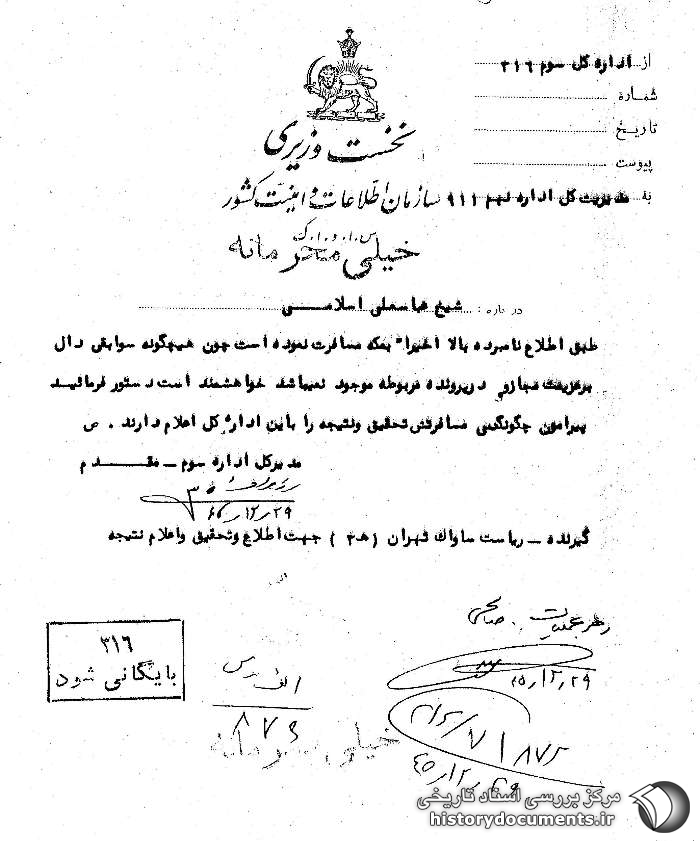 از اداره کل سوم ۳۱۶
شماره
تاریخ
پیوست
به مدیریت کل اداره نهم ۹۱۱
نخست وزیری
سازمان اطلاعات و امنیت کشور
س.ا.و.ا.ک
خیلی محرمانه
درباره : شیخ عباسعلی اسلامی
طبق اطلاع نامبرده بالا اخیرا" بمکه مسافرت نموده است چون هیچگونه سوابقی دال
برعزیمت مجازی در پرونده مربوطه موجود نمیباشد خواهشمند است دستور فرمائید
پیرامون چگونگی مسافرتش تحقیق و نتیجه را باین اداره کل اعلام دارند . ص
مدیرکل اداره سوم - مقدم
۲۹ر۱۲ر۴۵
گیرنده - ریاست ساواک تهران (ه۳) جهت اطلاع و تحقیق و اعلام نتیجه
صالحی
۲۹ر۱۲ر۴۵
۳۱۶
بایگانی شود
الف
خیلی محرمانه
مرکز بررسی اسناد تاریخی
historydocuments.ir